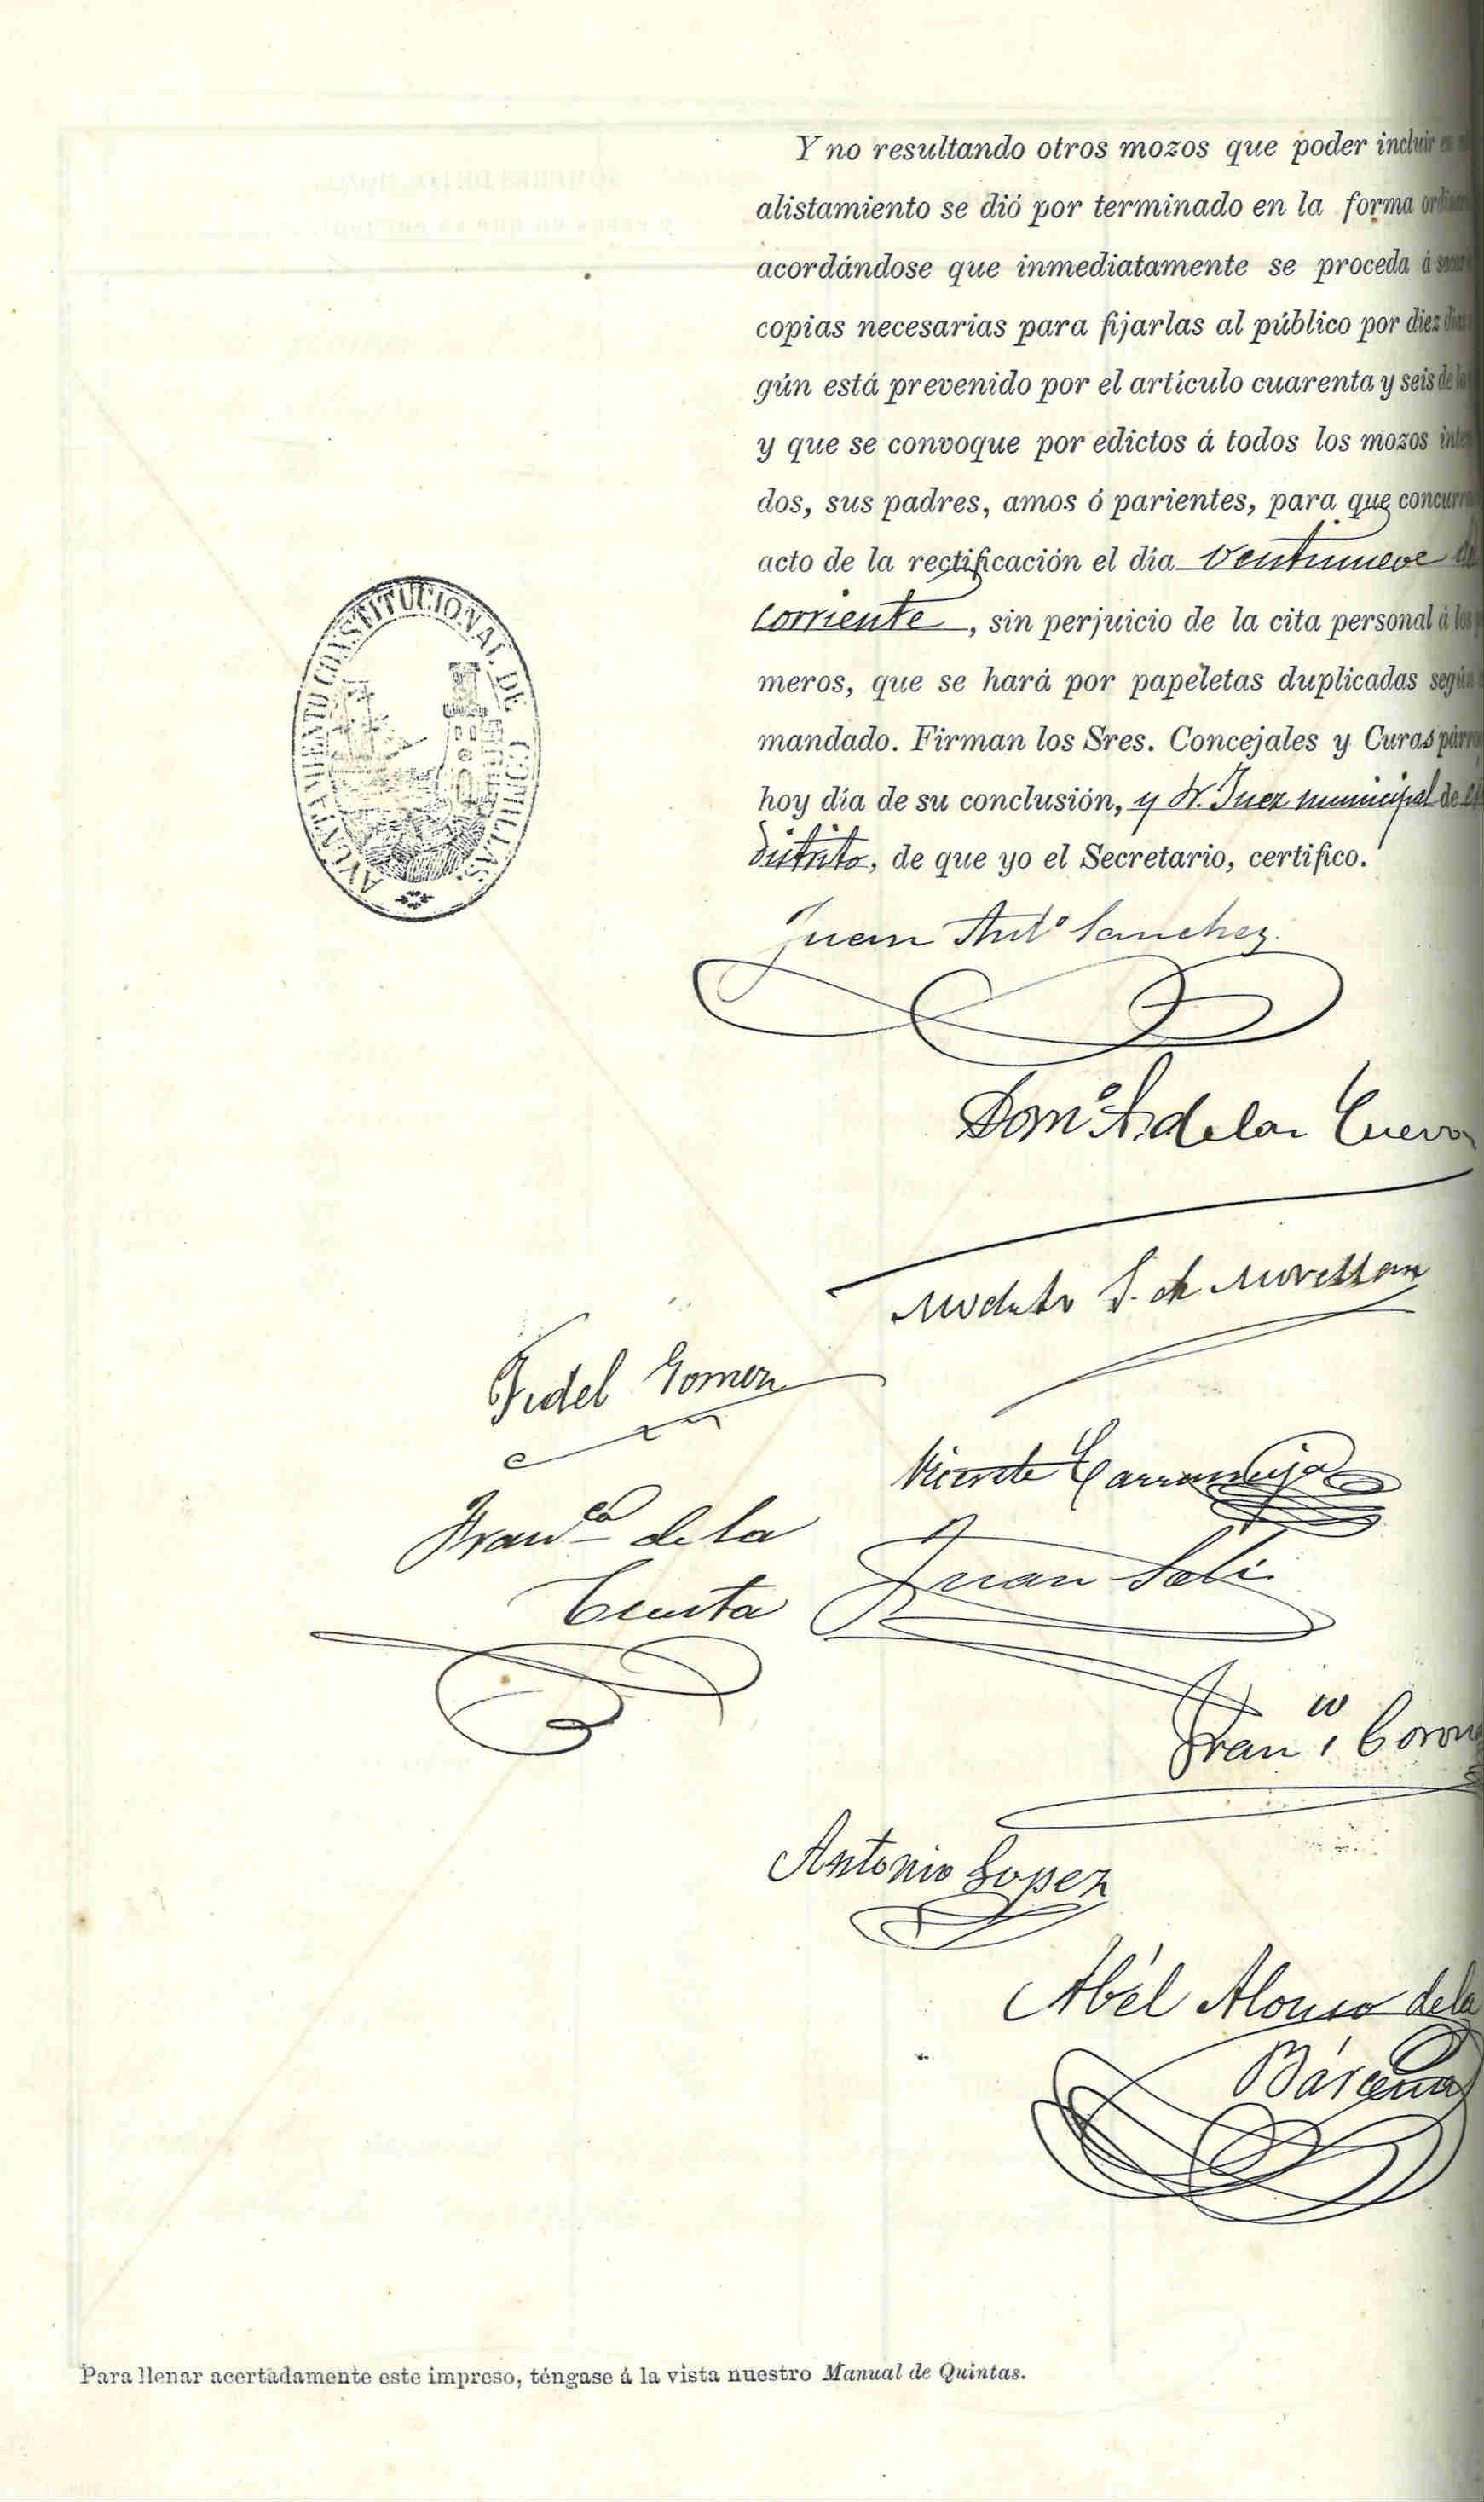 Y no resultando otros mozos que poder incluir en el
alistamiento se dió por terminado en la forma
acordándose que inmediatamente se proceda á
copias necesarias para fijarlas al público por diez
gún está prevenido por el artículo cuarenta y seis de la
y que se convoque por edictos á todos los mozos
dos, sus padres, amos ó parientes, para que
acto de la rectificación el día ventinueve
corriente, sin perjuicio de la cita personal á los
meros, que se hará por papeletas duplicadas según
mandado. Firman los Sres. Concejales y Curas
hoy día de su conclusión, y Sr. Juez municipal de
distrito, de que yo el Secretario, certifico.
AYUNTAMIENTO CONSTITUCIONAL DE COMILLAS.
Juan Antº Sanchez.
Domº A. de las Cuevas
Modesto S. de Movellan
Fidel Gomez
Vicente
Franco de la
Cuesta
Juan
Fran
Antonio Lopez
Abél Alonso de la
Bárcena
Para llenar acertadamente este impreso, téngase á la vista nuestro Manual de Quintas.